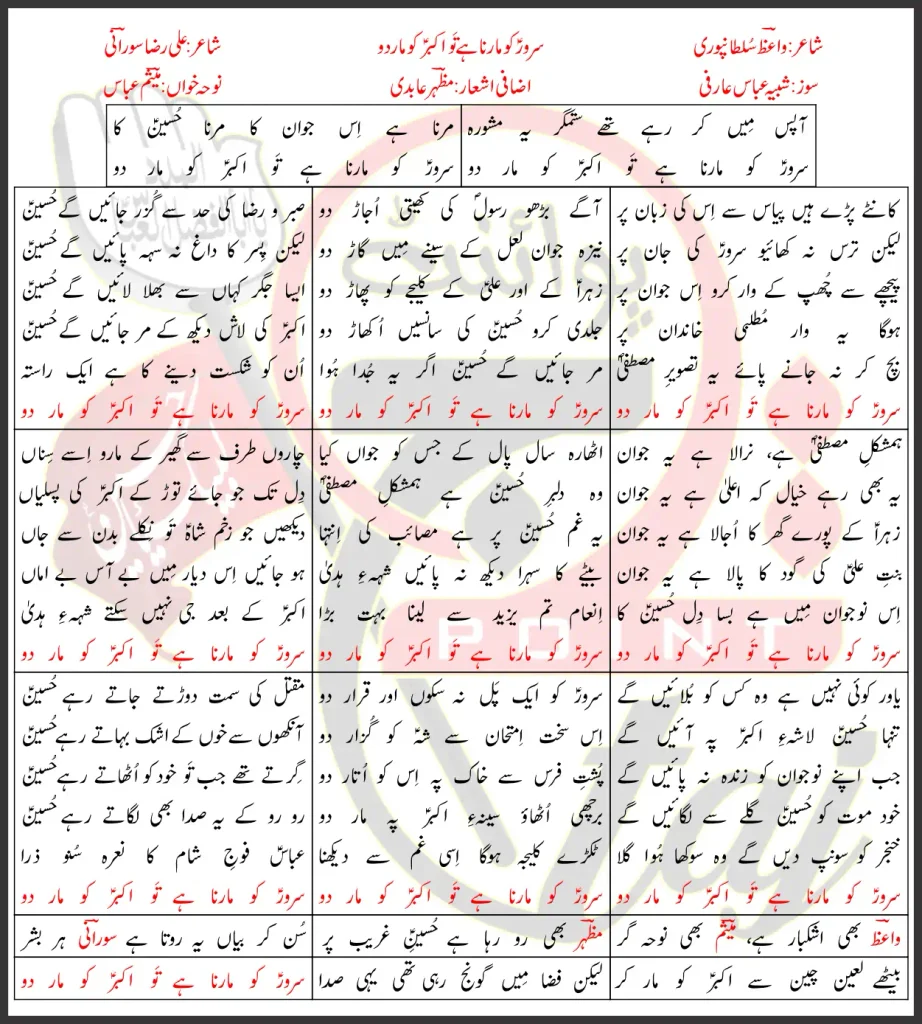 شاعر: واعظؔ سُلطانپوری
سرورؑ کو مارنا ہے تَو اکبرؑ کو مار دو
شاعر: علی رضا سورائیؔ
سوز: شبیہ عباس عارفی
اضافی اشعار: مظہرؔ عابدی
نوحہ خواں: میثمؔ عباس
آپس مِیں کر رہے تھے ستمگر یہ مشورہ
مرنا ہے اِس جوان کا مرنا حُسینؑ کا
سرورؑ کو مارنا ہے تَو اکبرؑ کو مار دو
سرورؑ کو مارنا ہے تَو اکبرؑ کو مار دو
کانٹے پڑے ہیں پیاس سے اِس کی زبان پر
لیکن ترس نہ کھائیو سرورؑ کی جان پر
پیچھے سے چُھپ کے وار کرو اِس جوان پر
ہوگا یہ وار مُطلبی خاندان پر
بچ کر نہ جانے پائے یہ تصویرِ مصطفیٰؐ
سرورؑ کو مارنا ہے تَو اکبرؑ کو مار دو
آگے بڑھو رسولؐ کی کھیتی اُجاڑ دو
نیزہ جوان لعل کے سینے مِیں گاڑ دو
زہراؑ کے اور علیؑ کے کلیجے کو پھاڑ دو
جلدی کرو حُسینؑ کی سانسیں اُکھاڑ دو
مر جائیں گے حُسینؑ اگر یہ جُدا ہُوا
سرورؑ کو مارنا ہے تَو اکبرؑ کو مار دو
صبر و رضا کی حد سے گُزر جائیں گے حُسینؑ
لیکن پِسر کا داغ نہ سہہ پائیں گے حُسینؑ
ایسا جگر کہاں سے بھلا لائیں گے حُسینؑ
اکبرؑ کی لاش دیکھ کے مر جائیں گے حُسینؑ
اُن کو شکست دینے کا ہے ایک راستہ
سرورؑ کو مارنا ہے تَو اکبرؑ کو مار دو
ہمشکلِ مصطفیٰؐ ہے، نرالا ہے یہ جوان
یہ بھی رہے خیال کہ اعلیٰ ہے یہ جوان
زہراؑ کے پورے گھر کا اُجالا ہے یہ جوان
بنتِ علیؑ کی گود کا پالا ہے یہ جوان
اِس نوجوان مِیں ہے بسا دِل حُسینؑ کا
سرورؑ کو مارنا ہے تَو اکبرؑ کو مار دو
اٹھارہ سال پال کے جس کو جواں کیا
وہ دلبرِ حُسینؑ ہے ہمشکلِ مصطفیٰؐ
یہ غم حُسینؑ پر ہے مصائب کی اِنتہا
بیٹے کا سہرا دیکھ نہ پائیں شہہِ ہدیٰ
اِنعام تم یزید سے لینا بہت بڑا
سرورؑ کو مارنا ہے تَو اکبرؑ کو مار دو
چاروں طرف سے گھیر کے مارو اِسے سِناں
دِل تک جو جائے توڑ کے اکبرؑ کی پسلیاں
دیکھیں جو زخم شاہؑ تَو نکلے بدن سے جاں
ہو جائیں اِس دیار مِیں بے آس بے اماں
اکبرؑ کے بعد جی نہیں سکتے شہہِ ہدیٰ
سرورؑ کو مارنا ہے تَو اکبرؑ کو مار دو
یاور کوئی نہیں ہے وہ کس کو بُلائیں گے
تنہا حُسینؑ لاشہءِ اکبرؑ پہ آئیں گے
جب اپنے نوجوان کو زندہ نہ پائیں گے
خود موت کو حُسینؑ گلے سے لگائیں گے
خنجر کو سونپ دیں گے وہ سوکھا ہُوا گلا
سرورؑ کو مارنا ہے تَو اکبرؑ کو مار دو
سرورؑ کو ایک پَل نہ سکوں اور قرار دو
اِس سخت اِمتحان سے شہؑ کو گُزار دو
پُشتِ فرس سے خاک پہ اِس کو اُتار دو
برچھی اُٹھاؤ سینہءِ اکبرؑ پہ مار دو
ٹکڑے کلیجہ ہوگا اِسی غم سے دیکھنا
سرورؑ کو مارنا ہے تَو اکبرؑ کو مار دو
مقتل کی سمت دوڑتے جاتے رہے حُسینؑ
آنکھوں سے خوں کے اشک بہاتے رہے حُسینؑ
گِرتے تھے جب تَو خود کو اُٹھاتے رہے حُسینؑ
رو رو کے یہ صدا بھی لگاتے رہے حُسینؑ
عباسؑ فوجِ شام کا نعرہ سُنو ذرا
سرورؑ کو مارنا ہے تَو اکبرؑ کو مار دو
واعظؔ بھی اشکبار ہے، میثمؔ بھی نوحہ گر
مظہرؔ بھی رو رہا ہے حُسینِؑ غریب پر
سُن کر بیاں یہ روتا ہے سورائیؔ ہر بشر
بیٹھے لعین چین سے اکبرؑ کو مار کر
لیکن فضا مِیں گونج رہی تھی یہی صدا
سرورؑ کو مارنا ہے تَو اکبرؑ کو مار دو
پوائنٹ
POINT